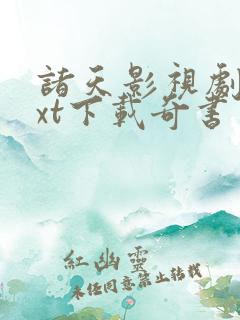 諸天影視劇
xt下載奇書
紅幽靈
未經同意禁止轉載